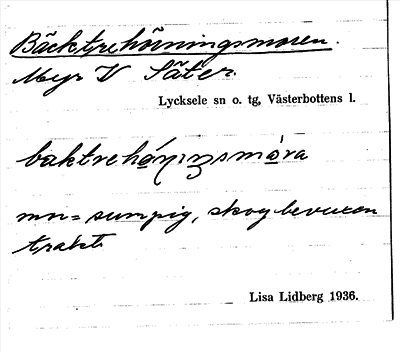 Bäcktrehörningsmoren.
Myr V Säter.
Lycksele sn o. tg, Västerbottens l.
baktrehó̱ṇıŋsmó̱ra
mn = sumpig, skogbevuxen
trakt.
Lisa Lidberg 1936.